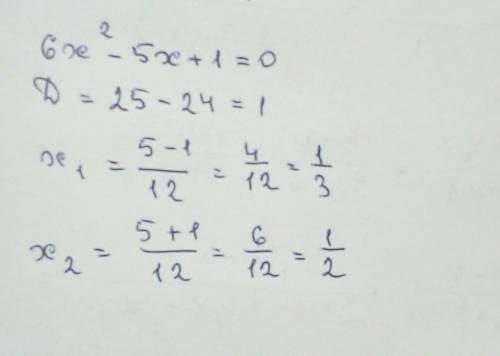 6x² - 5x + 1 = 0
D = 25 - 24 = 1
x₁ = (5 - 1)/12 = 4/12 = 1/3
x₂ = (5 + 1)/12 = 6/12 = 1/2